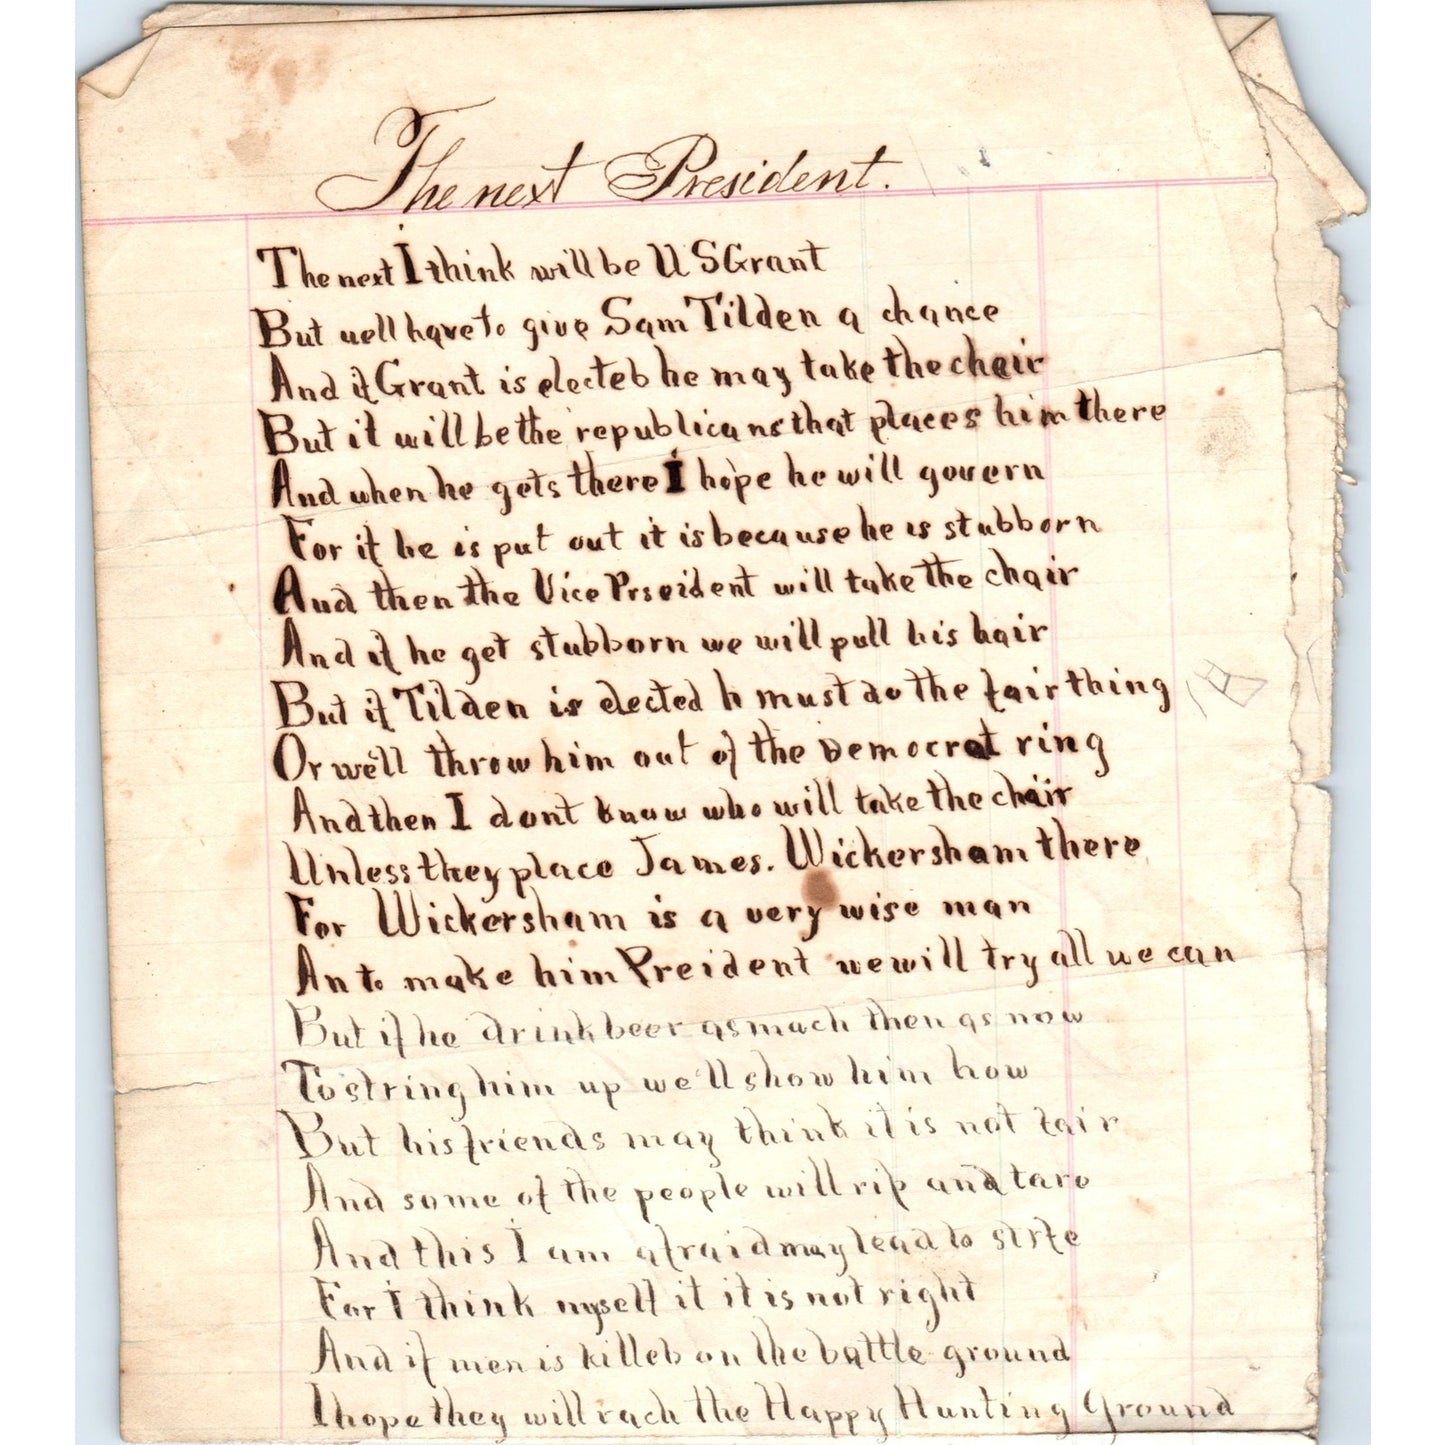 The next President.
The next I think will be U S Grant
But uell have to give Sam Tilden a chance
And if Grant is electeb he may take the chair
But it will be the republicans that places him there
And when he gets there I hope he will govern
For if he is put out it is because he is stubborn
And then the Vice Prseident will take the chair
And if he get stubborn we will pull his hair
But if Tilden is elected h must do the fair thing
Or we'll throw him out of the Democrat ring
And then I dont know who will take the chair
Unless they place James. Wickersham there
For Wickersham is a very wise man
An to make him Preident we will try all we can
But if he drink beer as mach then as now
To string him up we'll show him how
But his friends may think it is not fair
And some of the people will rip and tare
And this I am afraid may lead to strfe
For I think myself it it is not right
And if men is killeb on the battle ground
I hope they will rach the Happy Hunting Ground